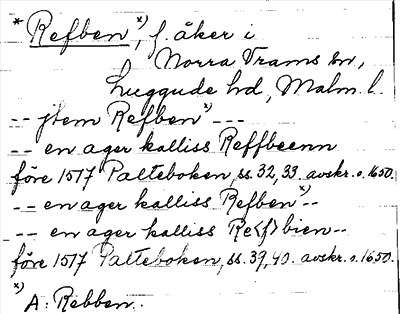 * Refben x), f. åker i
Norra Vrams sn,
Luggude hd, Malm. l.
-- jtem Refben x) ---
-- en ager kalliss Reffbeenn
före 1517 Palteboken, ss. 32, 33. avskr. o. 1650.
-- en ager kalliss Refben x) --
-- en ager kalliss Re<f>bien --
före 1517 Palteboken, ss. 39, 40. avskr. o. 1650.
x) A: Rebben.